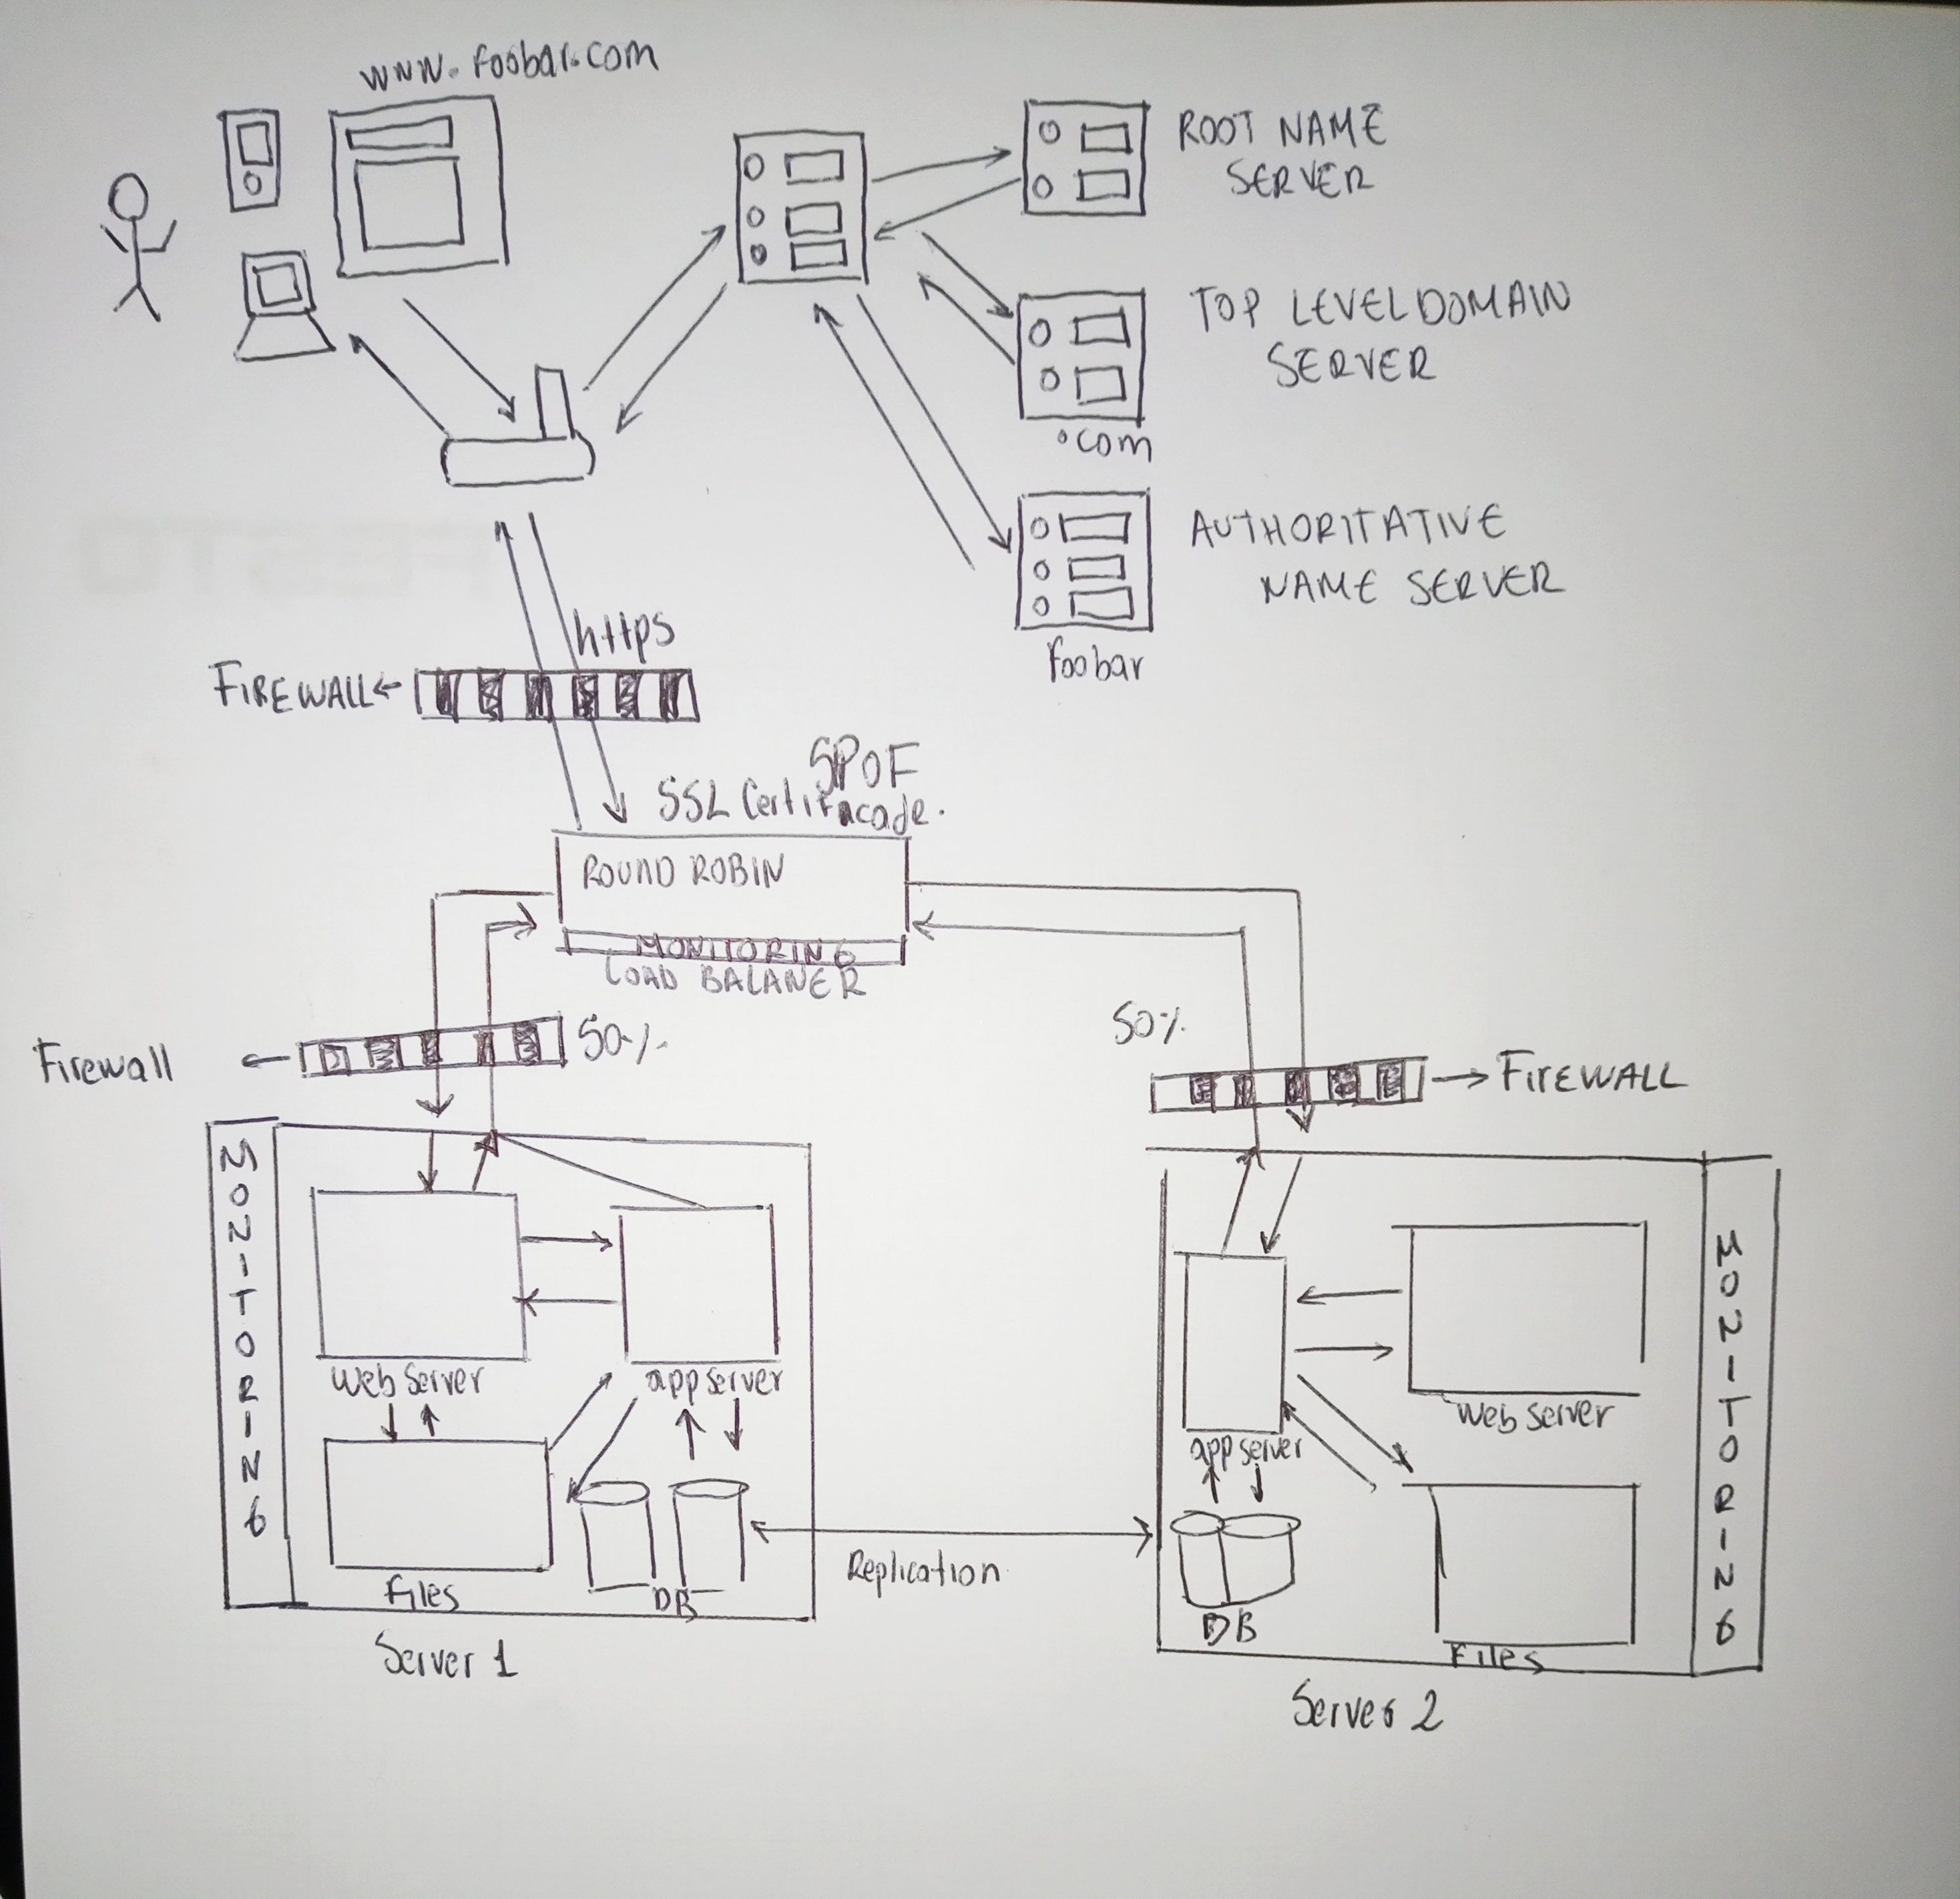 www.foobar.com
ROOT NAME
SERVER
TOP LEVEL DOMAIN
SERVER
.com
AUTHORITATIVE
NAME SERVER
foobar
https
FIREWALL
SPOF
SSL Certificade.
ROUND ROBIN
MONITORING
LOAD BALANER
50%
Firewall
50%
FIREWALL
MONITORING
web server
app server
Files
DB
Server 1
Replication
app server
web server
DB
Files
MONITORING
Server 2